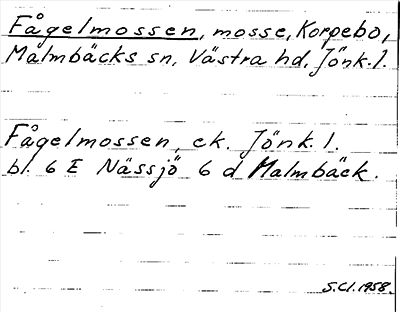 Fågelmossen, mosse, Korpebo,
Malmbäcks sn, Västra hd, Jönk. l.
Fågelmossen, ek. Jönk. l.
bl. 6 E Nässjö 6 d Malmbäck.
S.Cl. 1958.